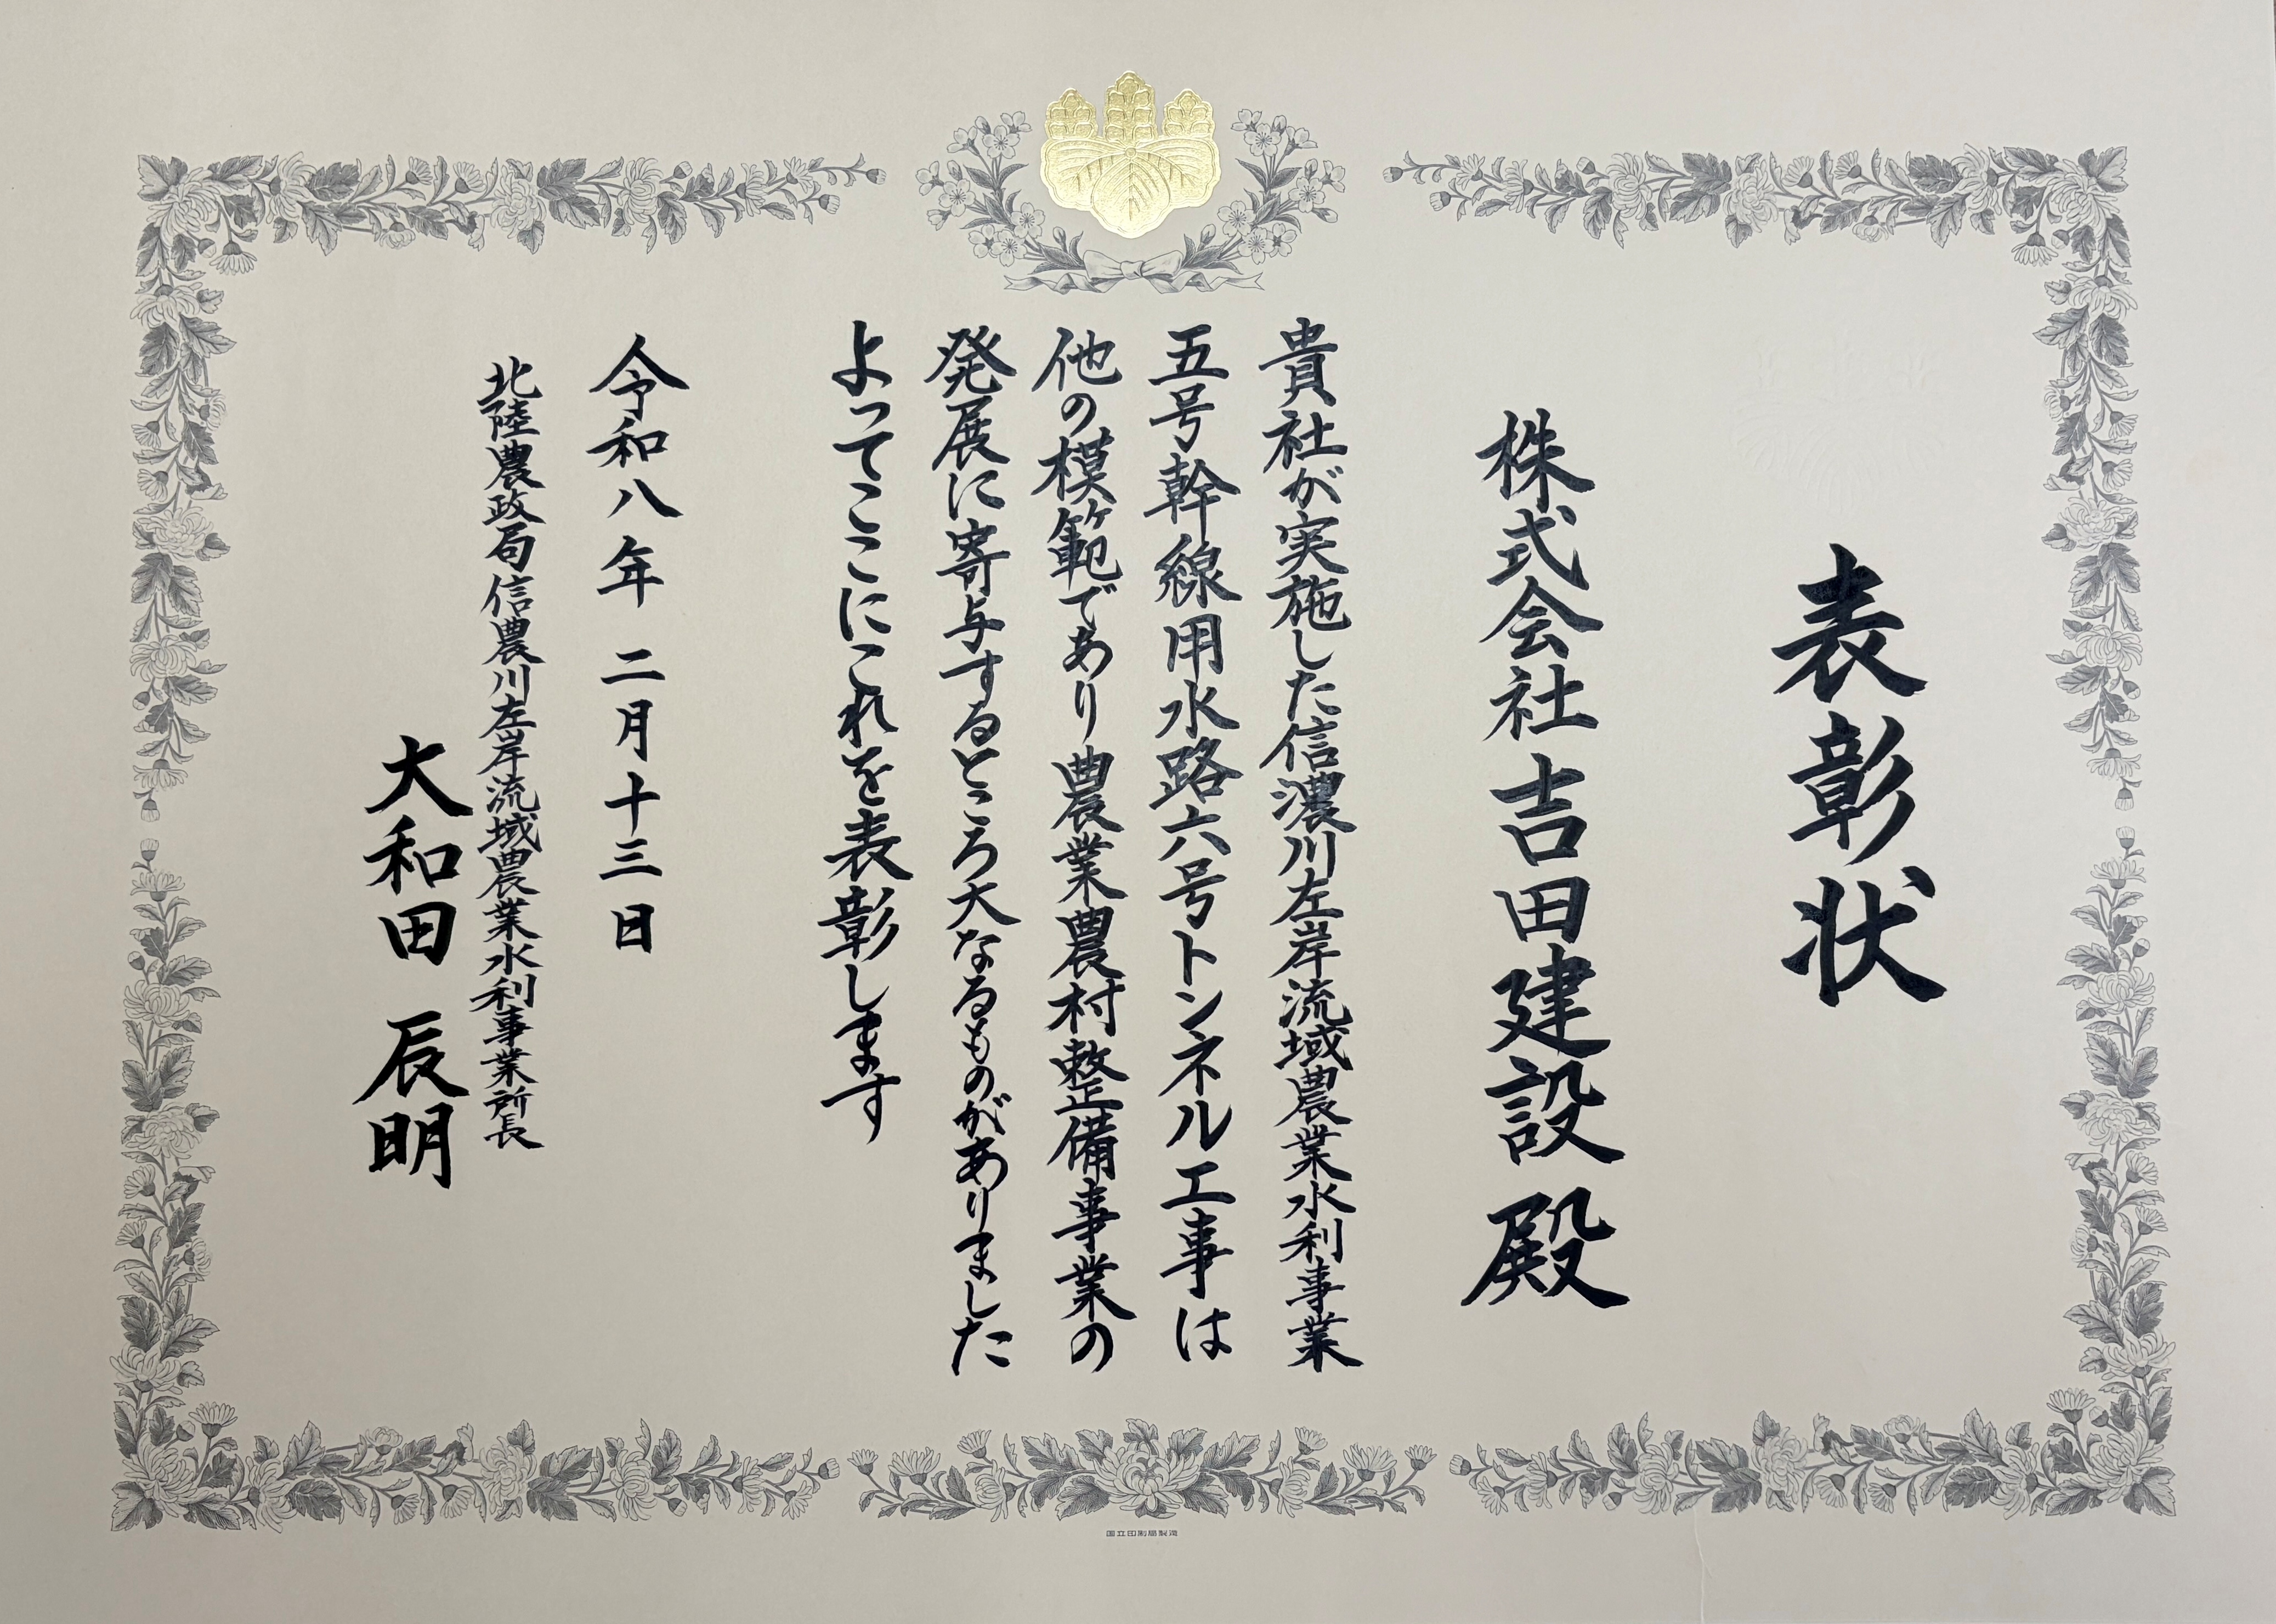 表彰状
株式会社吉田建設 殿
貴社が実施した信濃川左岸流域農業水利事業
五号幹線用水路六号トンネル工事は
他の模範であり農業農村整備事業の
発展に寄与するところ大なるものがありました
よってここにこれを表彰します
令和八年 二月十三日
北陸農政局信濃川左岸流域農業水利事業所長
大和田 辰明
国立印刷局製造